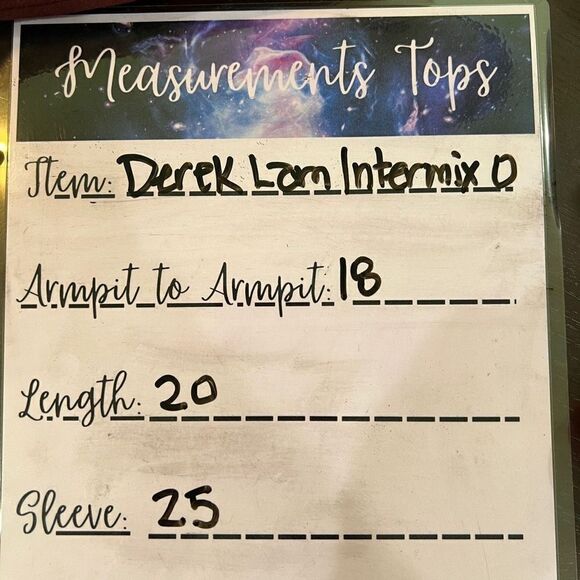 Measurements Tops
Item: Derek Lam Intermix 0
Armpit to Armpit: 18
Length: 20
Sleeve: 25